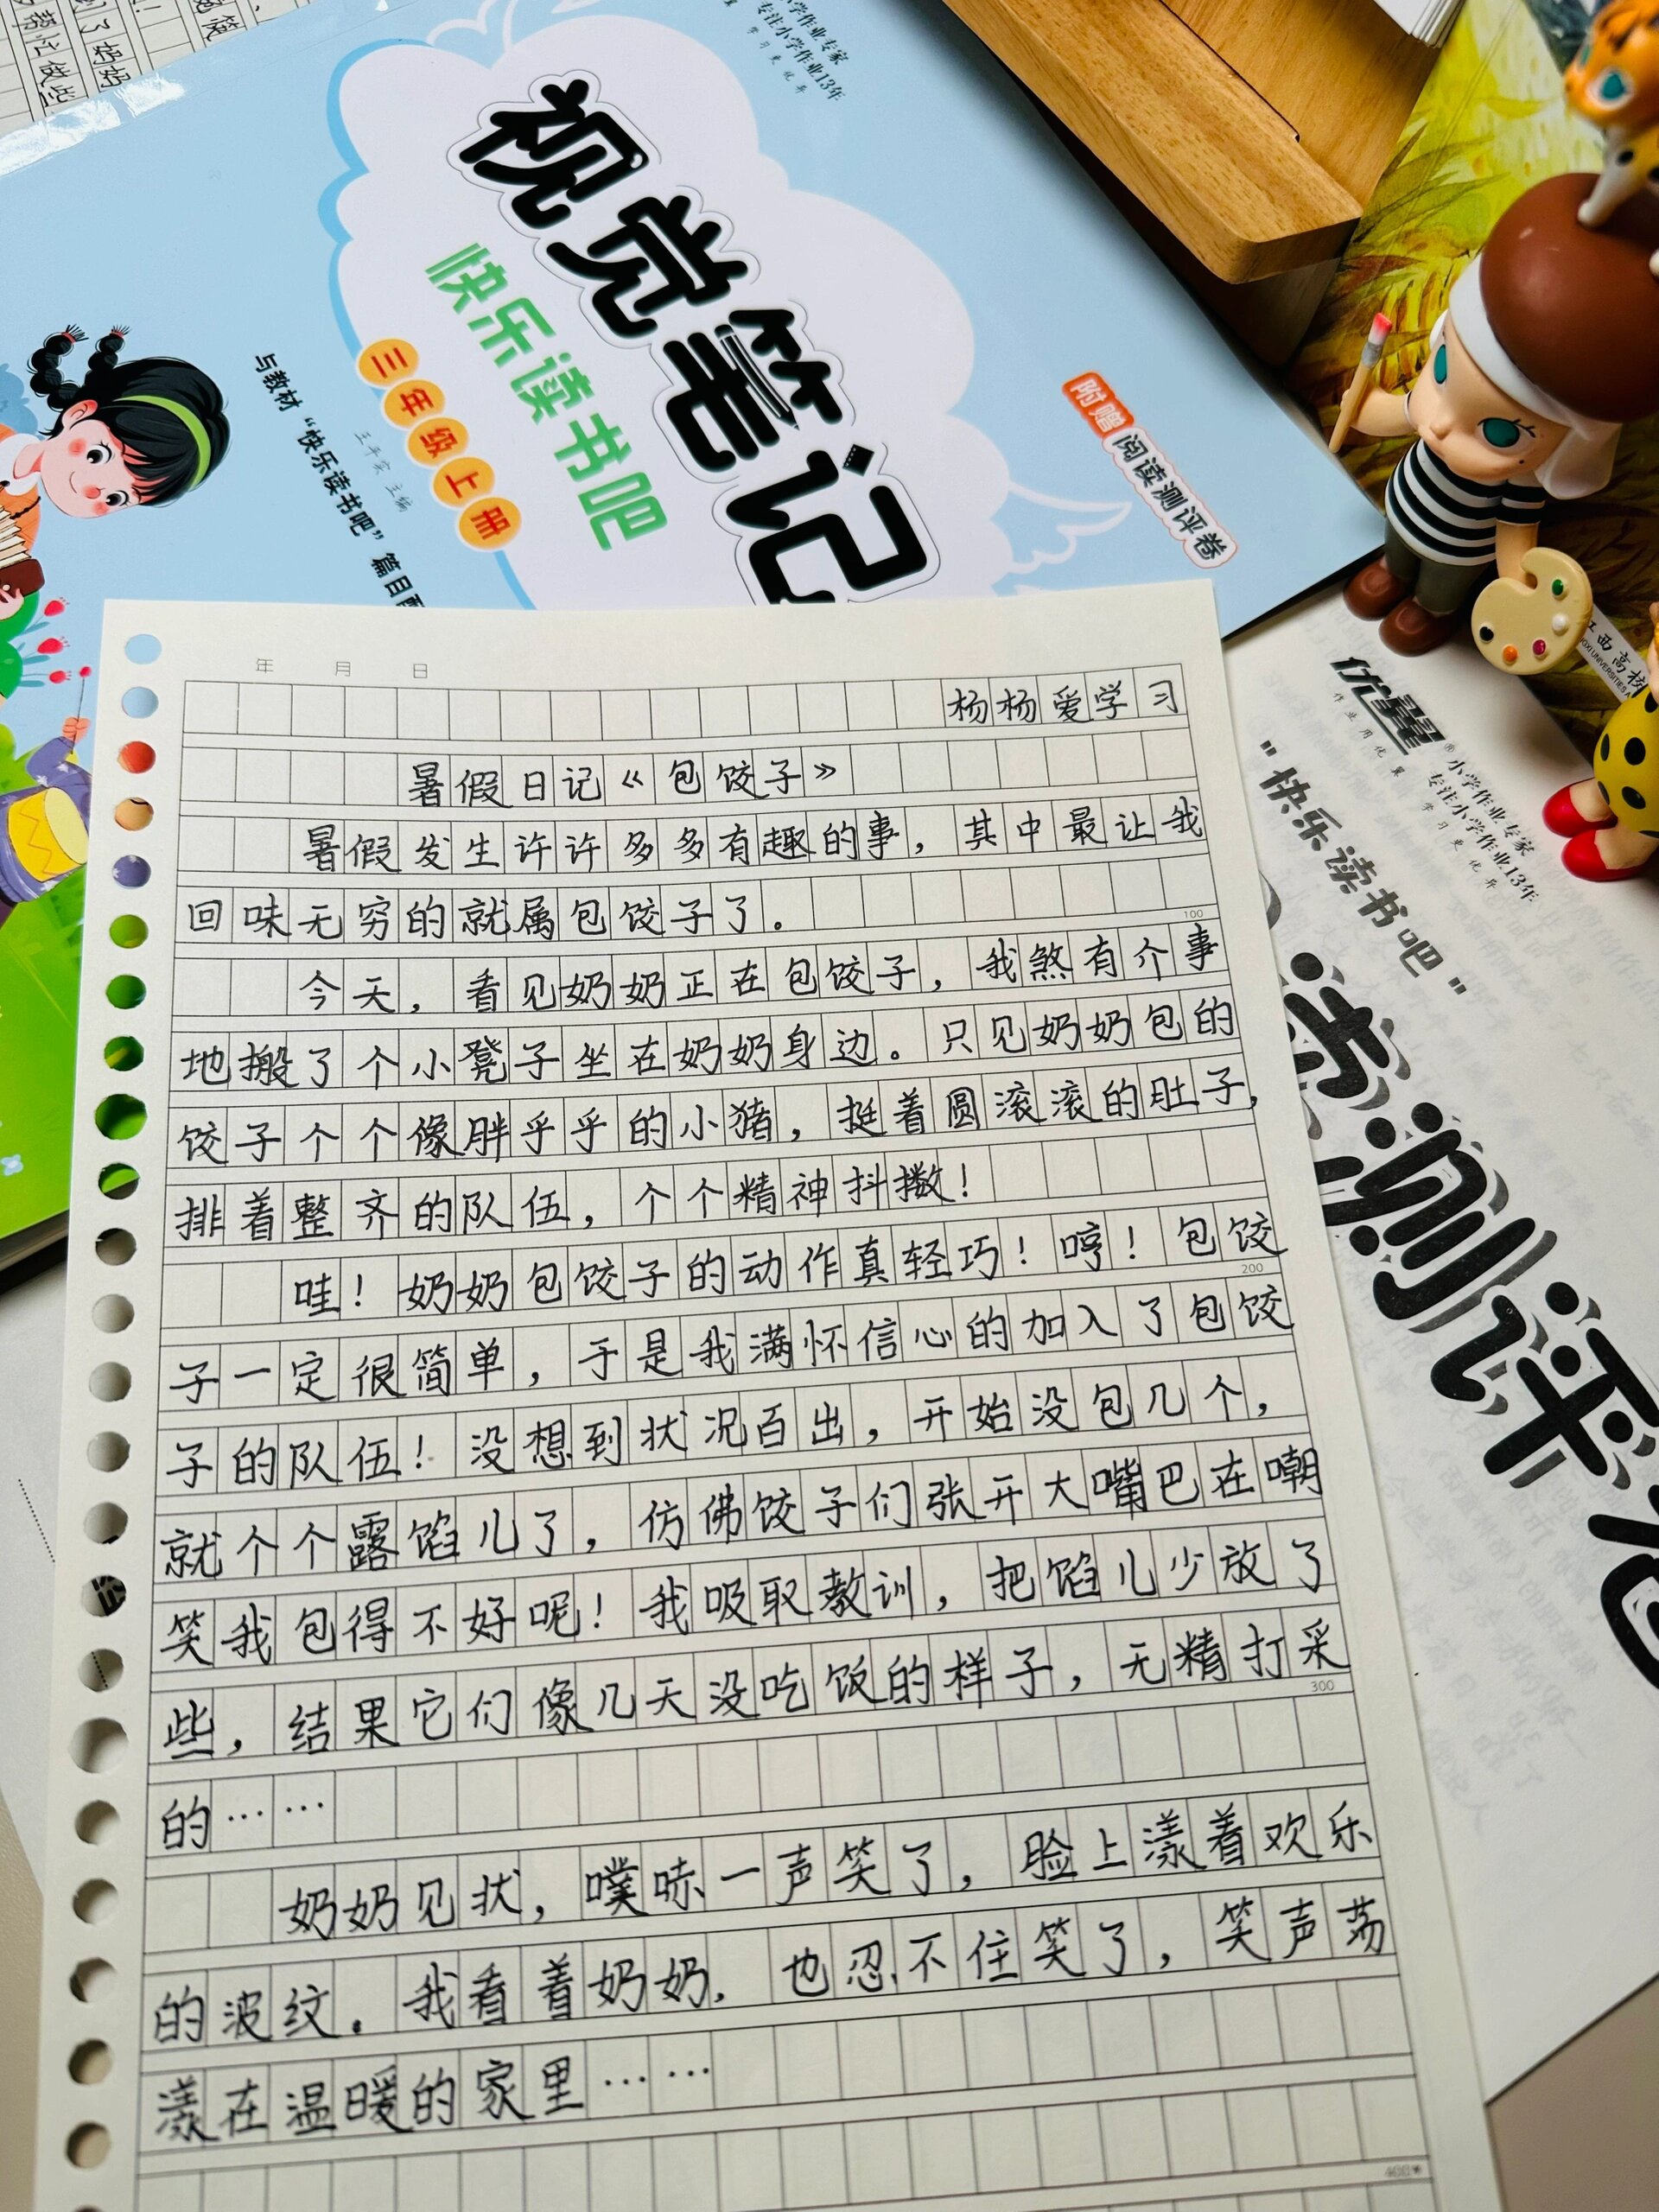 小学作业专家
专注小学作业13年
学习更优异
视觉笔记
快乐读书吧
三年级上册
与教材“快乐读书吧”篇目配
王平安 主编
附赠
阅读测评卷
优翼®
作业用优翼
小学作业专家
专注小学作业13年
学习更优异
"快乐读书吧"
读测评卷
江西高校
年 月 日
杨杨爱学习
暑假日记《包饺子》
暑假发生许许多多有趣的事，其中最让我
回味无穷的就属包饺子了。
100
今天，看见奶奶正在包饺子，我煞有介事
地搬了个小凳子坐在奶奶身边。只见奶奶包的
饺子个个像胖乎乎的小猪，挺着圆滚滚的肚子，
排着整齐的队伍，个个精神抖擞！
哇！奶奶包饺子的动作真轻巧！哼！包饺
200
子一定很简单，于是我满怀信心的加入了包饺
子的队伍！没想到状况百出，开始没包几个，
就个个露馅儿了，仿佛饺子们张开大嘴巴在嘲
笑我包得不好呢！我吸取教训，把馅儿少放了
些，结果它们像几天没吃饭的样子，无精打采
300
的……
奶奶见状，噗哧一声笑了，脸上漾着欢乐
的波纹。我看着奶奶，也忍不住笑了，笑声荡
漾在温暖的家里……
400